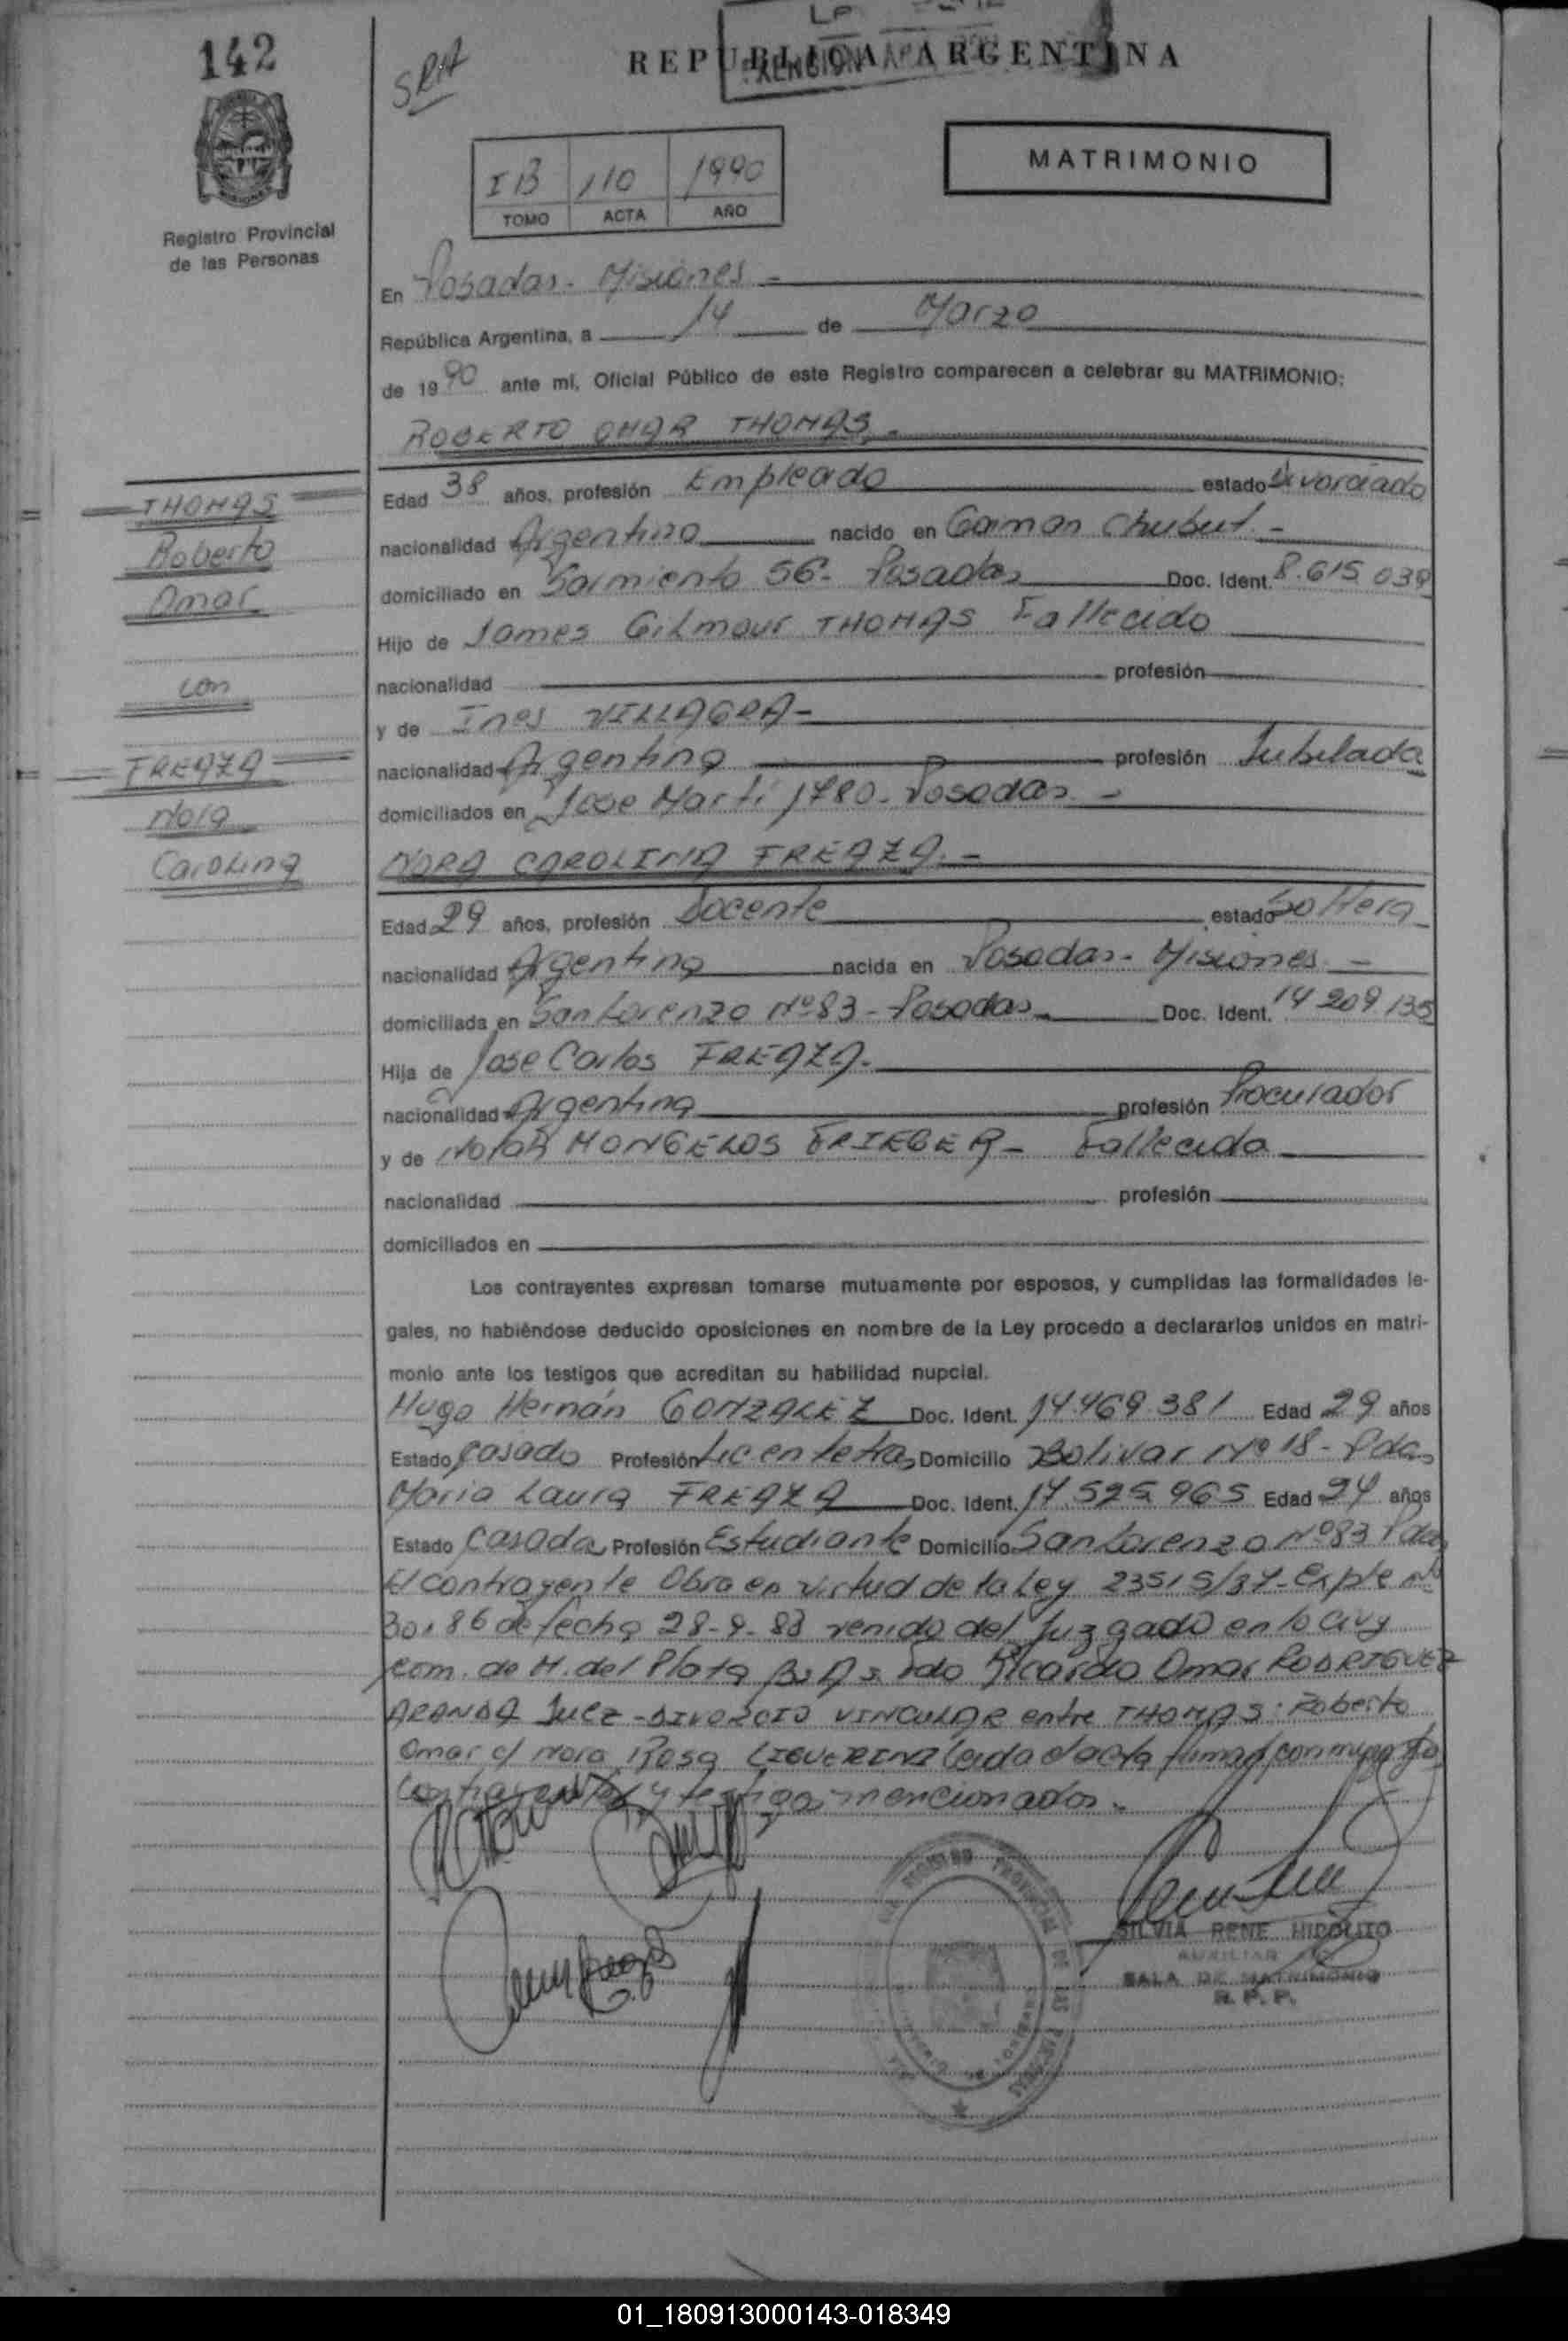 142
SRA
REPUBLICA ARGENTINA
MATRIMONIO
Registro Provincial
de las Personas
IB 110 1990
TOMO ACTA AÑO
En Posadas - Misiones -
República Argentina, a 14 de Marzo
de 1990 ante mí, Oficial Público de este Registro comparecen a celebrar su MATRIMONIO:
ROBERTO OMAR THOMAS.
THOMAS
Roberto
Omar
con
FREAZA
Nora
Carolina
Edad 38 años, profesión Empleado estado Divorciado
nacionalidad Argentino nacido en Gaiman Chubut. -
domiciliado en Sarmiento 56 - Posadas Doc. Ident. 8.615 039
Hijo de James Gilmour THOMAS Fallecido
nacionalidad profesión
y de Ines VILLAGRA -
nacionalidad Argentina profesión Jubilada
domiciliados en Jose Marti 1780 - Posadas -
NORA CAROLINA FREAZA. -
Edad 29 años, profesión Docente estado Soltera
nacionalidad Argentina nacida en Posadas - Misiones -
domiciliada en San Lorenzo Nº 83 - Posadas Doc. Ident. 14 209 135
Hija de Jose Carlos FREAZA.
nacionalidad Argentina profesión Procurador
y de MONGELOS FRIEBER - Fallecida
nacionalidad profesión
domiciliados en
Los contrayentes expresan tomarse mutuamente por esposos, y cumplidas las formalidades le-
gales, no habiéndose deducido oposiciones en nombre de la Ley procedo a declararlos unidos en matri-
monio ante los testigos que acreditan su habilidad nupcial.
Hugo Hernán GONZALEZ Doc. Ident. 14.469.381 Edad 29 años
Estado Casado Profesión Lic en letras Domicilio Bolivar Nº 18 - Pdas
Maria Laura FREAZA Doc. Ident. 17.525.965 Edad 24 años
Estado Casada Profesión Estudiante Domicilio San Lorenzo Nº 83 Pdas
El contrayente Obra en virtud de la Ley 23515/87 - Expte Nº
30.186 de fecha 28-9-88 venido del Juzgado en lo Civ y
Com. de M. del Plata Bs As. Fdo Ricardo Omar RODRIGUEZ
ARANDA Juez - DIVORCIO VINCULAR entre THOMAS: Roberto
Omar c/ Nora Rosa Leida el acta firman conmigo los
contrayentes y testigos mencionados. -
SILVIA RENE HIPOLITO
AUXILIAR
SALA DE MATRIMONIO
R. P. P.
01_180913000143-018349